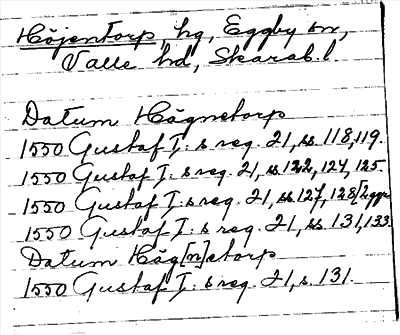 Höjentorp, hg, Eggby sn,
Valle hd, Skarab.l.
Datum Högnetorp
1550 Gustaf I:s reg. 21, ss. 118, 119.
1550 Gustaf I:s reg. 21, ss. 122, 124, 125.
1550 Gustaf I:s reg. 21, ss. 127, 128/2ggr
1550 Gustaf I:s reg. 21, ss. 131, 133
Datum Hög[n]etorp
1550 Gustaf I:s reg. 21, s. 131.